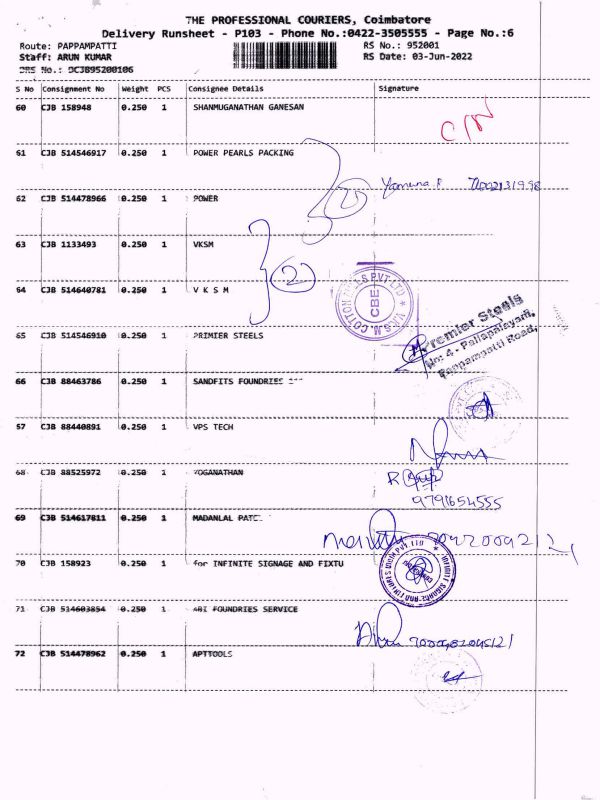 THE PROFESSIONAL COURIERS, Coimbatore
Delivery Runsheet - P103 - Phone No.:0422-3505555 - Page No.:6
Route: PAPPAMPATTI RS No.: 952001
Staff: ARUN KUMAR RS Date: 03-Jun-2022
DRS No.: DCJB95200106
S No Consignment No Weight PCS Consignee Details Signature
60 CJB 158948 0.250 1 SHANMUGANATHAN GANESAN
61 CJB 514546917 0.250 1 POWER PEARLS PACKING
62 CJB 514478966 0.250 1 POWER
63 CJB 1133493 0.250 1 VKSM
2
64 CJB 514640781 0.250 1 V K S M
V.K.S.M. COTTON MILLS PVT LTD
CBE
65 CJB 514546910 0.250 1 PRIMIER STEELS
Premier Steels
No: 4 - Pallapalayam,
Pappampatti Road,
66 CJB 88463786 0.250 1 SANDFITS FOUNDRIES
67 CJB 88440891 0.250 1 VPS TECH
68 CJB 88525972 0.250 1 YOGANATHAN
9791654555
69 CJB 514617811 0.250 1 MADANLAL
70 CJB 158923 0.250 1 for INFINITE SIGNAGE AND FIXTU
71 CJB 514603854 0.250 1 ABI FOUNDRIES SERVICE
72 CJB 514478962 0.250 1 APTTOOLS